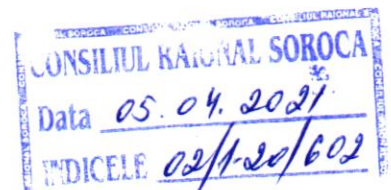 CONSILIUL RAIONAL SOROCA
Data 05.04.2021
INDICELE 02/1-20/602